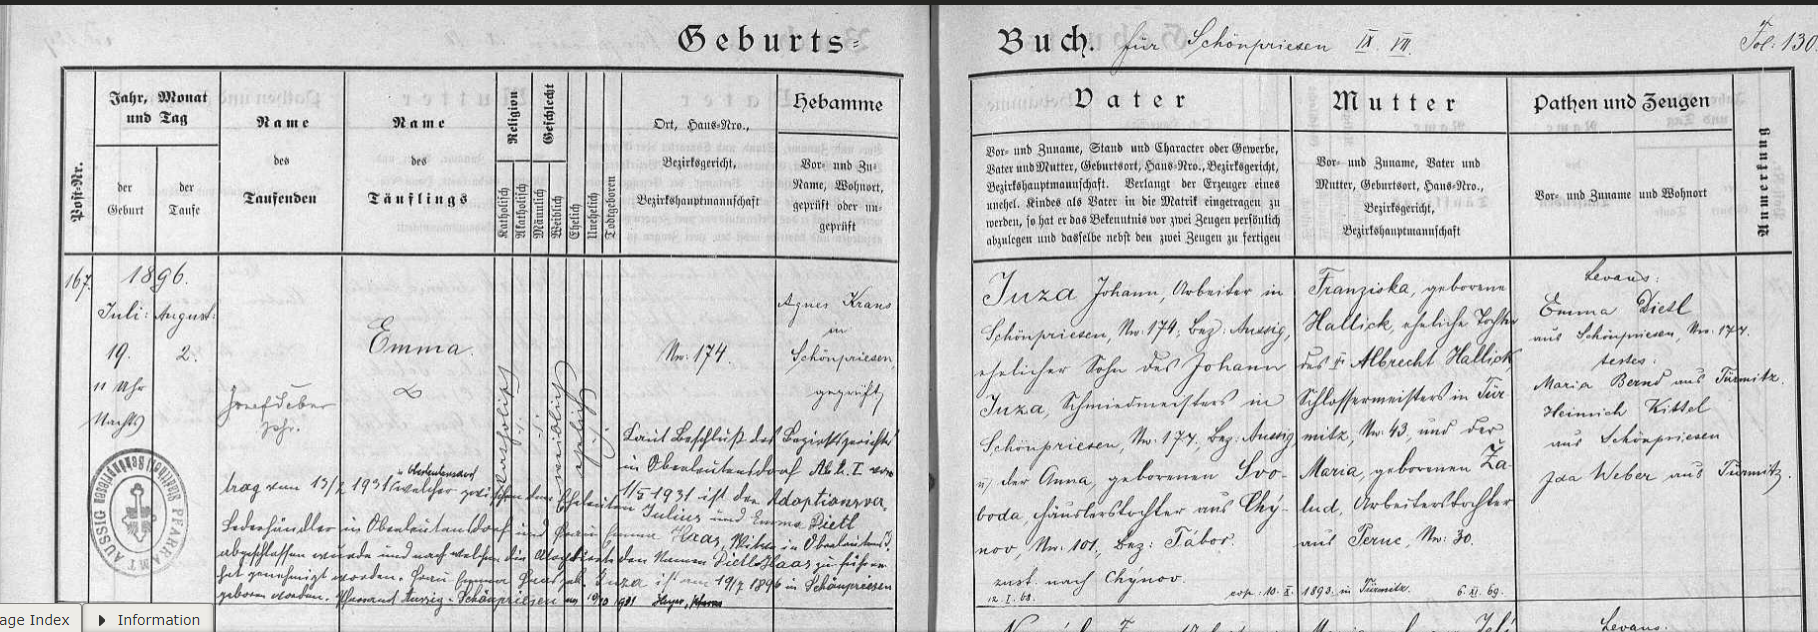 Geburts-
Buch. für Schönpriesen IX. VII.
Fol: 130.
Post-Nr.
Jahr, Monat
und Tag
der
Geburt
der
Taufe
Name
des
Taufenden
Name
des
Täuflings
Religion
Katholisch
Akatholisch
Geschlecht
Männlich
Weiblich
Ehelich
Unehelich
Todtgeboren
Ort, Haus-Nro.,
Bezirksgericht,
Bezirkshauptmannschaft
Hebamme
Vor- und Zu-
Name, Wohnort,
geprüft oder un-
geprüft
Vater
Vor- und Zuname, Stand und Character oder Gewerbe,
Vater und Mutter, Geburtsort, Haus-Nro., Bezirksgericht,
Bezirkshauptmannschaft. Verlangt der Erzeuger eines
unehel. Kindes als Vater in die Matrik eingetragen zu
werden, so hat er das Bekenntnis vor zwei Zeugen persönlich
abzulegen und dasselbe nebst den zwei Zeugen zu fertigen
Mutter
Vor- und Zuname, Vater und
Mutter, Geburtsort, Haus-Nro.,
Bezirksgericht,
Bezirkshauptmannschaft
Pathen und Zeugen
Vor- und Zuname und Wohnort
Anmerkung
167.
1896.
Juli: August:
19. 2.
11 Uhr
Nachts
Josef
Emma.
katholisch
weiblich
ehelich
Nr: 174.
Agnes Kraus
in
Schönpriesen,
geprüft
Juza Johann, Arbeiter in
Schönpriesen, Nr: 174, Bez: Aussig,
ehelicher Sohn des Johann
Juza, Schmiedmeisters in
Schönpriesen, Nr: 177, Bez: Aussig
u. der Anna, geborenen Svo-
boda, Häuslerstochter aus Chý-
nov, Nr: 101, Bez: Tábor.
zust. nach Chýnov.
Franziska, geborene
Hallick, eheliche Tochter
des Albrecht Hallick,
Schlossermeisters in Tür
mitz, Nr: 43, und der
Maria, geborenen Za-
lud, Arbeiterstochter
aus Peruc, Nr: 30.
cop: 10. X. 1893. in Türmitz. 6. XI. 69.
Levans:
Emma Dietl
aus Schönpriesen, Nro: 177.
testes:
Maria Bernd aus Türmitz.
Heinrich Kittel
aus Schönpriesen
Ida Weber aus Türmitz.
Laut Beschluß des Bezirksgerichts
in Oberleutensdorf
11/5 1931 ist der Adoptionsver-
trag vom 13/2 1931 welcher zwischen den Eheleuten Julius und Emma Dietl
Lederhändler in Oberleutensdorf und Frau Emma
abgeschlossen wurde und nach welchem die den Namen Dietl-Haas zu führen
hat genehmigt worden. Frau Emma Haas geb. Juza ist am 19/7 1896 in Schönpriesen
geboren worden. Pfarramt Aussig-Schönpriesen am 1931
PFARRAMT AUSSIG
age Index
Information
Levans: